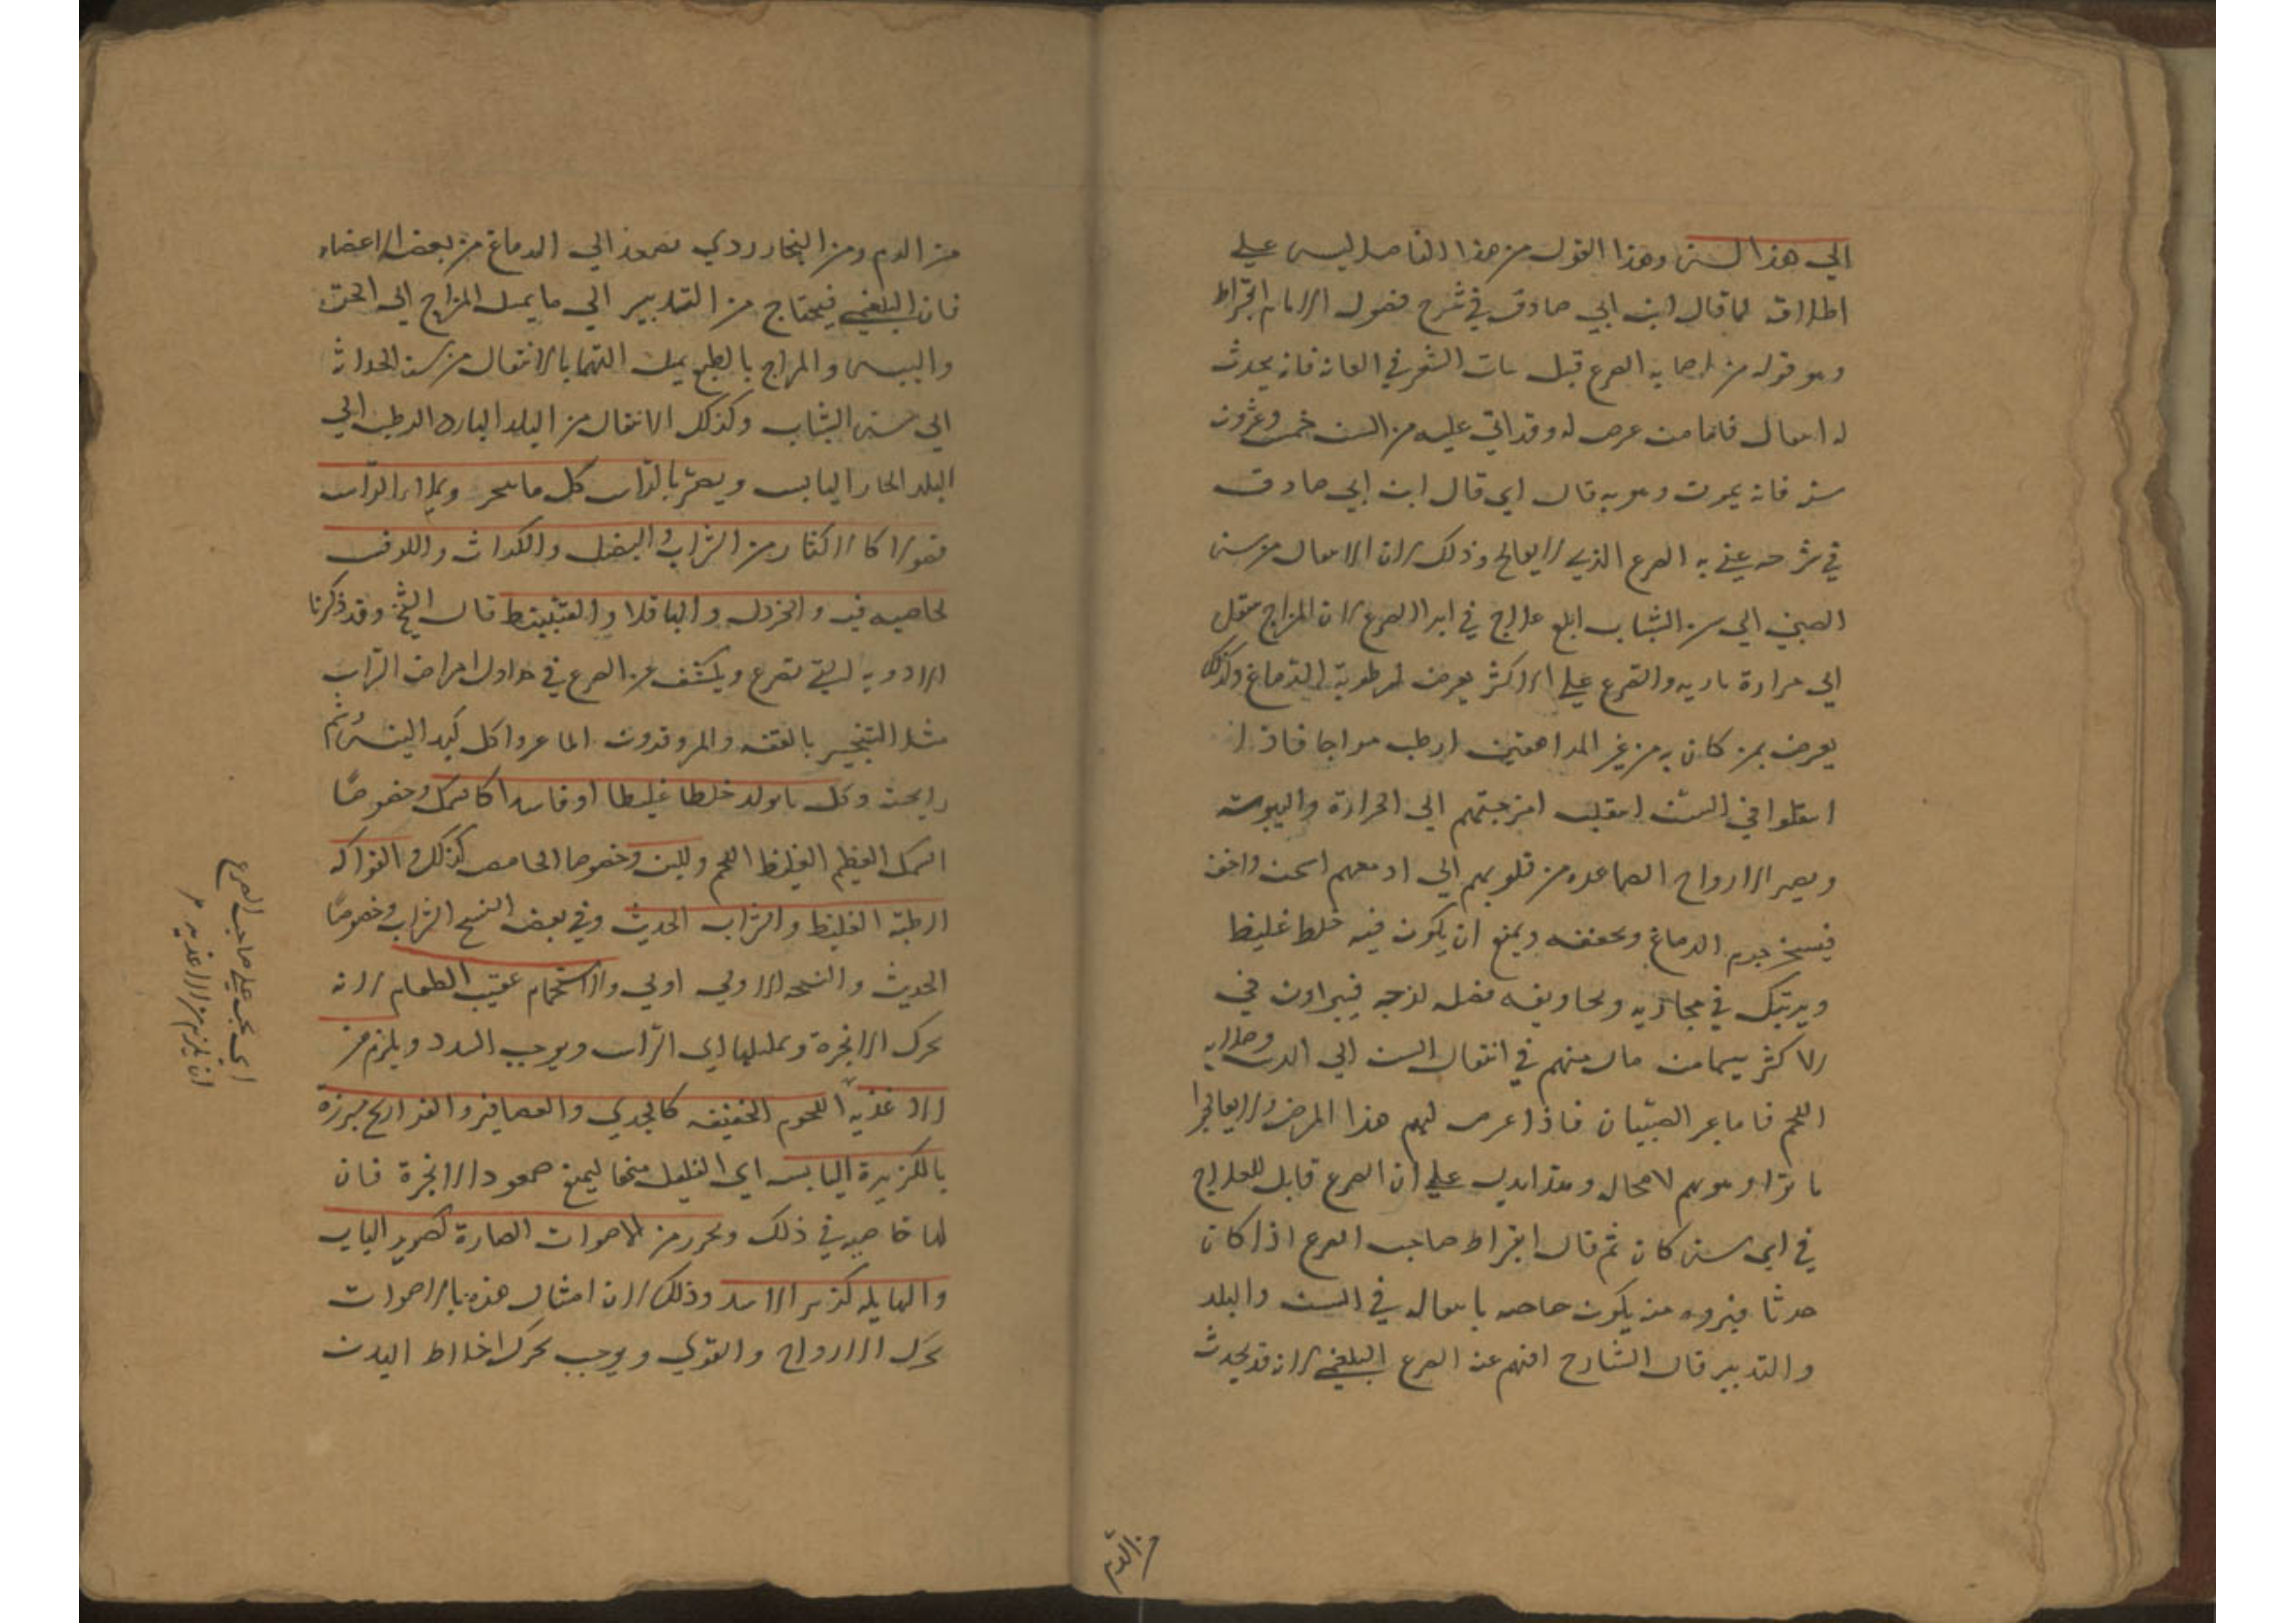 الي هذا السن وهذا القول من هذا الفاضل ليس علي
اطلاق لما قال ابن ابي صادق في شرح فصول الامام ابقراط
وهو قوله من اصابه الصرع قبل نبات الشعر في العانه فانه يحدث
له انتقال فاما من عرض له وقد اتي عليه من السن خمس وعشرون
سنه فانه يموت وهو به قال اي قال ابن ابي صادق
في شرحه يعني به الصرع الذي لا يعالج وذلك لان الانتقال من سن
الصبي الي سن الشباب ابلغ علاج في ابرا الصرع لان المزاج ينتقل
الي حرارة ناريه والصرع علي الاكثر يعرض لرطوبة الدماغ وكذلك
يعرض بمن كان به من غير المراهقين ارطب مزاجا فاذا
انتقلوا في السن انتقلت امزجتهم الي الحرارة واليبوسه
ويصير الارواح الصاعده من قلوبهم الي ادمغتهم اسخن واخف
فيسخن جرم الدماغ ويجففه ويمنع ان يكون فيه خلط غليظ
ويرتبك في مجاريه وتجاويفه فضله لزجه فيبراون في
الاكثر سيما من مال منهم في انتقال السن الي الدب وصلابه
اللحم فاما غير الصبيان فاذا عرض لهم هذا المرض ولا يعالجوا
ماتوا وهو بهم لا محاله وهذا يدل علي ان الصرع قابل للعلاج
في اي سن كان ثم قال ابقراط صاحب الصرع اذا كان
حدثا فبروه منه يكون خاصه بانتقاله في السن والبلد
والتدبير قال الشارح افهم عنه الصرع البلغمي لانه قد يحدث
من الدم
من الدم ومن البخار ردي تصعد الي الدماغ من بعض الاعضاء
فان البلغمي فيحتاج من التدبير الي ما يميل المزاج الي الحر
واليبس والمزاج بالطبع يميل اليهما بالانتقال من سن الحداثه
الي سن الشباب وكذلك الانتقال من البلد البارد الرطب الي
البلد الحار اليابس ويضر بالراس كل ما يبخر ويملا الراس
فضولا كالاكثار من الشراب والبصل والكراث واللوف
لخاصيه فيه والخردل والباقلا والقنبيط قال الشيخ وقد ذكرنا
الادويه التي تصرع ويكشف عن الصرع في جداول امراض الراس
مثل التبخير بالقنه والمر وقرون الماعز واكل كبد التيس وشم
رايحته وكل ما يولد خلطا غليظا او فاسدا كالسمك وخصوصًا
السمك العظيم الغليظ اللحم واللبن وخصوصا الحامض كذلك والفواكه
الرطبة الغليظ والشراب الحديث وفي بعض النسخ الشراب وخصوصًا
الحديث والنسخه الاولي اولي والاستحمام عقيب الطعام لانه
يحرك الابخرة ويملبها الي الراس ويوجب السدد ويلزم من
الاغذيه اللحوم الخفيفه كالجدي والعصافير والفراريج مبرزه
بالكزبرة اليابس اي القليل منها ليمنع صعود الابخرة فان
لها خاصيه في ذلك ويحرز من الاصوات الضارة كصرير الباب
والهايله كزير الاسد وذلك لان امثال هذه بالاصوات
يحرك الارواح والقوي ويوجب تحرك اخلاط البدن
اي يجب علي صاحب الصرع
ان يلزم من الاغذيه